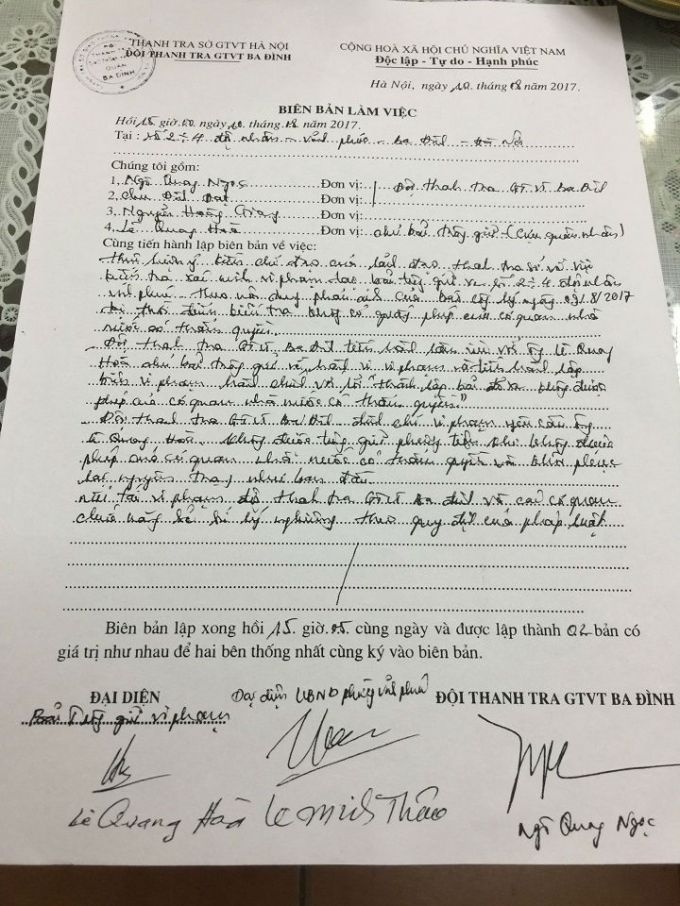 THANH TRA SỞ GTVT HÀ NỘI
ĐỘI THANH TRA GTVT BA ĐÌNH
CỘNG HOÀ XÃ HỘI CHỦ NGHĨA VIỆT NAM
Độc lập - Tự do - Hạnh phúc
QUẬN
BA ĐÌNH
Hà Nội, ngày 10 tháng 8 năm 2017.
BIÊN BẢN LÀM VIỆC
Hồi 15 giờ 00 ngày 10 tháng 8 năm 2017.
Tại : Số 2 - 4 đội nhân - Vĩnh phúc - Ba Đình - Hà Nội
Chúng tôi gồm:
1, Ngô Quang Ngọc Đơn vị: Đội thanh tra GTVT Ba Đình
2, Chu Đình Đạt Đơn vị:
3, Nguyễn Hoàng Giang Đơn vị:
4, Lê Quang Hoà Đơn vị: chủ bãi trông giữ (Cựu quân nhân)
Cùng tiến hành lập biên bản về việc:
ý kiến chỉ đạo của lãnh đạo thanh tra sở về việc
kiểm tra xác minh vi phạm bãi trông giữ xe số 2 - 4 đội nhân
vĩnh phúc theo nội dung phản ánh của ngày 09/8/2017
thời điểm kiểm tra không có giấy phép của cơ quan nhà
nước có thẩm quyền.
Đội thanh tra GTVT Ba Đình tiến hành làm việc với ông Lê Quang
Hoà chủ bãi trông giữ về hành vi vi phạm và tiến hành lập
biên vi phạm hành chính với lỗi "thành lập bãi đỗ xe không được
phép của cơ quan nhà nước có thẩm quyền"
Đội thanh tra GTVT Ba Đình đình chỉ vi phạm yêu cầu ông
Lê Quang Hoà không được trông giữ phương tiện khi không được
phép của cơ quan nhà nước có thẩm quyền và khôi phục
lại nguyên trạng như ban đầu.
nếu tái vi phạm đội thanh tra GTVT Ba Đình và các cơ quan
chức năng sẽ xử lý nghiêm theo quy định của pháp luật
Biên bản lập xong hồi 15 giờ 05 cùng ngày và được lập thành 02 bản có
giá trị như nhau để hai bên thống nhất cùng ký vào biên bản.
ĐẠI DIỆN
Đại diện UBND phường Vĩnh phúc
ĐỘI THANH TRA GTVT BA ĐÌNH
Bãi trông giữ vi phạm
Lê Quang Hoà
Lê Minh Thảo
Ngô Quang Ngọc